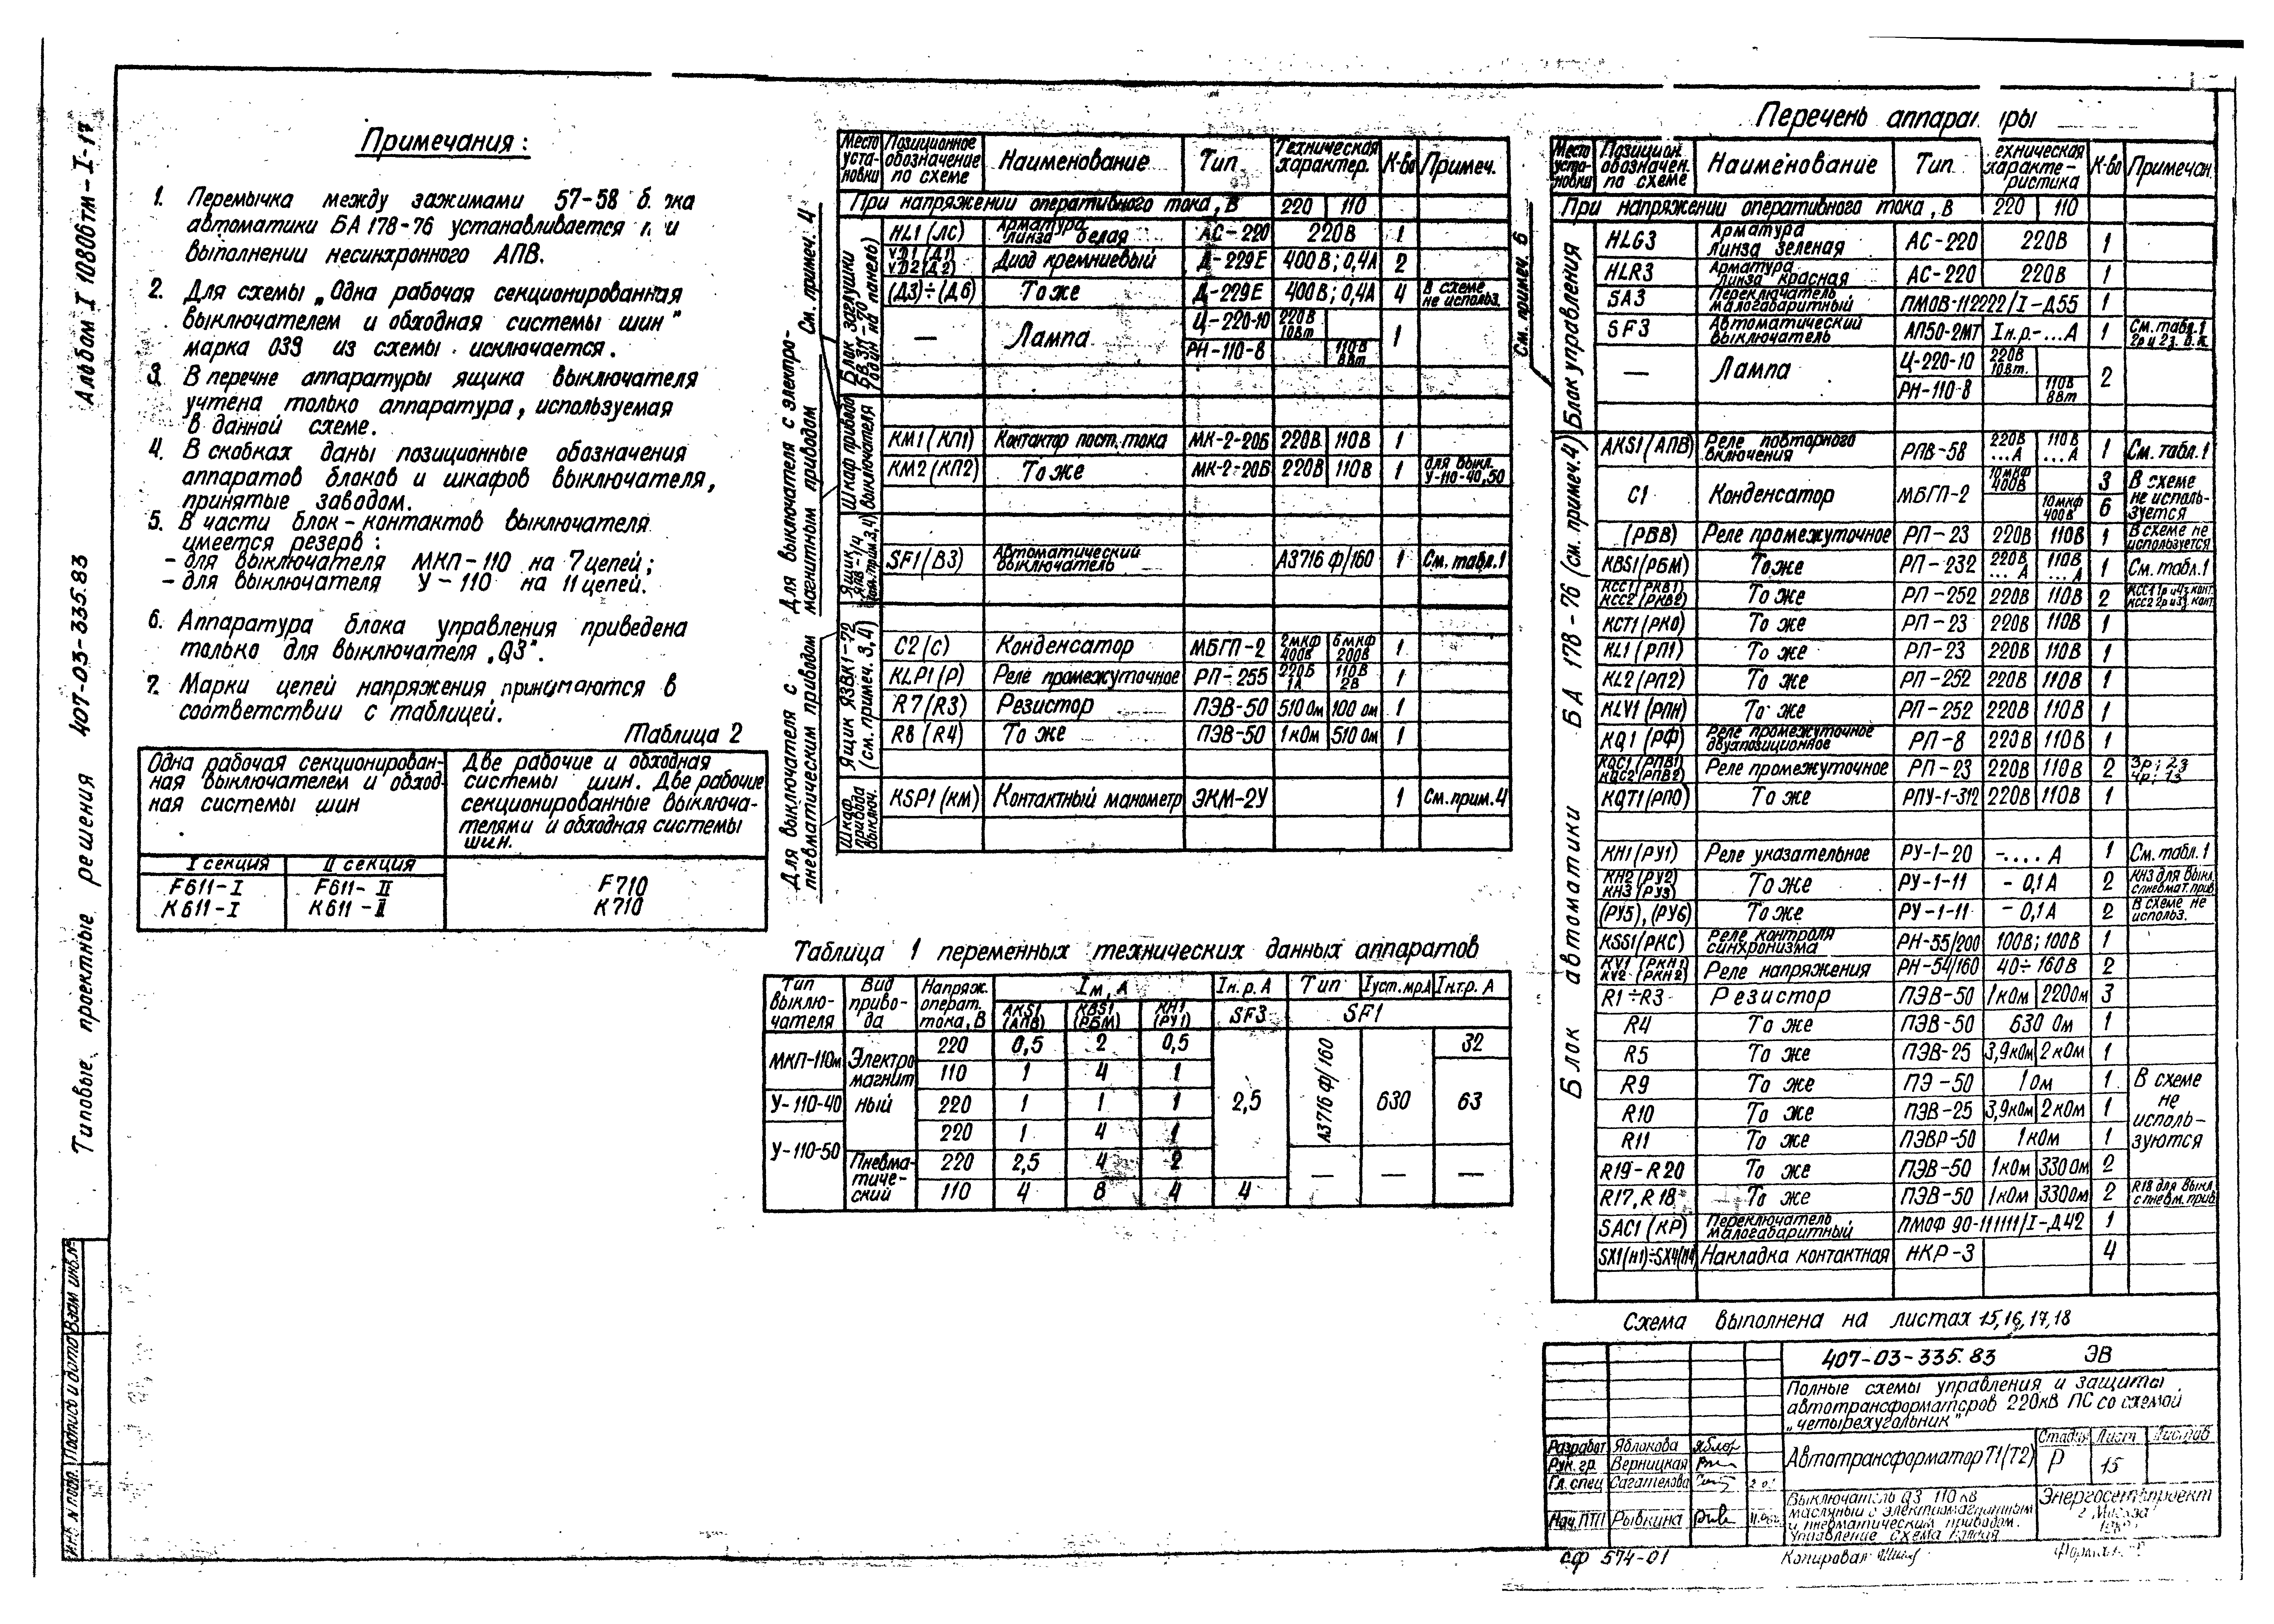 Альбом I 10806тм-I-17
407-03-335.83
Типовые проектные решения
Примечания:
1. Перемычка между зажимами 57-58
автоматики БА 178-76 устанавливается
выполнении несинхронного АПВ.
2. Для схемы „Одна рабочая секционированная
выключателем и обходная системы шин"
марка 039 из схемы исключается.
3. В перечне аппаратуры ящика выключателя
учтена только аппаратура, используемая
в данной схеме.
4. В скобках даны позиционные обозначения
аппаратов блоков и шкафов выключателя,
принятые заводом.
5. В части блок-контактов выключателя
имеется резерв:
- для выключателя МКП-110 на 7 цепей;
- для выключателя У-110 на 11 цепей.
6. Аппаратура блока управления приведена
только для выключателя „Q3".
7. Марки цепей напряжения принимаются в
соответствии с таблицей.
Таблица 2
Одна рабочая секционирован-
ная выключателем и обход-
ная системы шин
Две рабочие и обходная
системы шин. Две рабочие
секционированные выключа-
телями и обходная системы
шин.
I секция II секция
F611-I F611-II F710
K611-I K611-II K710
Для выключателя с электро-
магнитным приводом
См. примеч. 4
Для выключателя с
пневматическим приводом
Место уста-новки Позиционное обозначение по схеме Наименование Тип Техническая характер. К-во Примеч.
При напряжении оперативного тока, В 220 110
Блок заглушки
HL1 (ЛС) Арматура линза белая АС-220 220В 1
VD1 (Д1) VD2 (Д2) Диод кремниевый Д-229Е 400В; 0,4А 2
(Д3)÷(Д6) То же Д-229Е 400В; 0,4А 4 В схеме не использ.
— Лампа Ц-220-10 220В 10Вт 1
РН-110-8 110В 8Вт
Шкаф привода выключателя
КМ1 (КП1) Контактор пост. тока МК-2-20Б 220В 110В 1
КМ2 (КП2) То же МК-2-20Б 220В 110В 1 для выкл. У-110-40,50
SF1 (В3) Автоматический выключатель А3716 Ф/160 1 См. табл.1
Ящик ЯЗВК1-72 (см. примеч. 3,4)
С2 (С) Конденсатор МБГП-2 2мкф 400В 6мкф 200В 1
KLP1 (Р) Реле промежуточное РП-255 1А 110В 2В 1
R7 (R3) Резистор ПЭВ-50 510 Ом 100 Ом 1
R8 (R4) То же ПЭВ-50 1кОм 510 Ом 1
Шкаф привода выключ.
KSP1 (КМ) Контактный манометр ЭКМ-2У 1 См. прим. 4
Таблица 1 переменных технических данных аппаратов
Тип выклю-чателя Вид приво-да Напряж. операт. тока, В Iм, А Iн.р. А Тип Iуст.мр.А Iн.т.р. А
AKS1 (АПВ) KBS1 (РБМ) KH1 (РУ1) SF3 SF1
МКП-110м Электромагнитный 220 0,5 2 0,5 2,5 А3716 Ф/160 630 32
110 1 4 1 63
У-110-40 220 1 1 1
У-110-50 220 1 4 1
Пневма-тиче-ский 220 2,5 4 2 — — —
110 4 8 4 4
Перечень
См. примеч. 6
Место уста-новки Позицион. обозначен. по схеме Наименование Тип К-во Примечан.
При напряжении оперативного тока, В 220 110
Блок управления
HLG3 Арматура линза зеленая АС-220 220В 1
HLR3 Арматура линза красная АС-220 220В 1
SA3 Переключатель малогабаритный ПМОВ-112222/I-Д55 1
SF3 Автоматический выключатель АП50-2МТ Iн.р.-...А 1 См. табл.1
— Лампа Ц-220-10 220В 10Вт. 2
РН-110-8 110В 8Вт
Блок автоматики БА 178-76 (см. примеч. 4)
AKS1 (АПВ) Реле повторного включения РПВ-58 220В ...А 110В ...А 1 См. табл. 1
С1 Конденсатор МБГП-2 10мкф 400В 3 В схеме не исполь-зуется
10мкф 400В 6
(РВВ) Реле промежуточное РП-23 220В 110В 1 В схеме не используется
KBS1 (РБМ) То же РП-232 220В ...А 110В ...А 1 См. табл. 1
KCC1 (РКВ1) KCC2 (РКВ2) То же РП-252 220В 110В 2
KCT1 (РКО) То же РП-23 220В 110В 1
KL1 (РП1) То же РП-23 220В 110В 1
KL2 (РП2) То же РП-252 220В 110В 1
KLV1 (РПН) То же РП-252 220В 110В 1
KQ1 (РФ) Реле промежуточное двухпозиционное РП-8 220В 110В 1
KQC1 (РПВ1) KQC2 (РПВ2) Реле промежуточное РП-23 220В 110В 2 3р; 2з 4р; 1з
KQT1 (РПО) То же РПУ-1-312 220В 110В 1
KH1 (РУ1) Реле указательное РУ-1-20 -.... А 1 См. табл. 1
KH2 (РУ2) KH3 (РУ3) То же РУ-1-11 - 0,1 А 2 KH3 для выкл. с пневмат. прив.
(РУ5), (РУ6) То же РУ-1-11 - 0,1 А 2 В схеме не использ.
KSS1 (РКС) Реле контроля синхронизма РН-55/200 100В; 100В 1
KV1 (РКН1) KV2 (РКН2) Реле напряжения РН-54/160 40÷160В 2
R1÷R3 Резистор ПЭВ-50 1кОм 220Ом 3
R4 То же ПЭВ-50 630 Ом 1
R5 То же ПЭВ-25 3,9кОм 2кОм 1
R9 То же ПЭ-50 1 Ом 1 В схеме не исполь-зуются
R10 То же ПЭВ-25 3,9кОм 2кОм 1
R11 То же ПЭВР-50 1кОм 1
R19-R20 То же ПЭВ-50 1кОм 330Ом 2
R17, R18 То же ПЭВ-50 1кОм 330Ом 2 R18 для выкл. с пневм. прив.
SAC1 (КР) Переключатель малогабаритный ПМОФ 90-111111/I-Д42 1
Накладка контактная НКР-3 4
Схема выполнена на листах 15,16,17,18
407-03-335.83 ЭВ
Полные схемы управления и защиты
автотрансформаторов 220кВ ПС со схемой
„четырехугольник"
Автотрансформатор Т1(Т2)
Стадия Лист Листов
Р 15
Разработ. Яблокова
Рук. гр. Верницкая
Гл. спец Сагателова
Нач. ПТП Рывкина
Выключатель Q3 110 кВ
масляный с электромагнитным
и пневматическим приводом.
Управление. Схема полная
Энергосетьпроект
г. Москва
Взам инв.№
Подпись и дата
Инв. N подл.
сф 574-01
Копировал